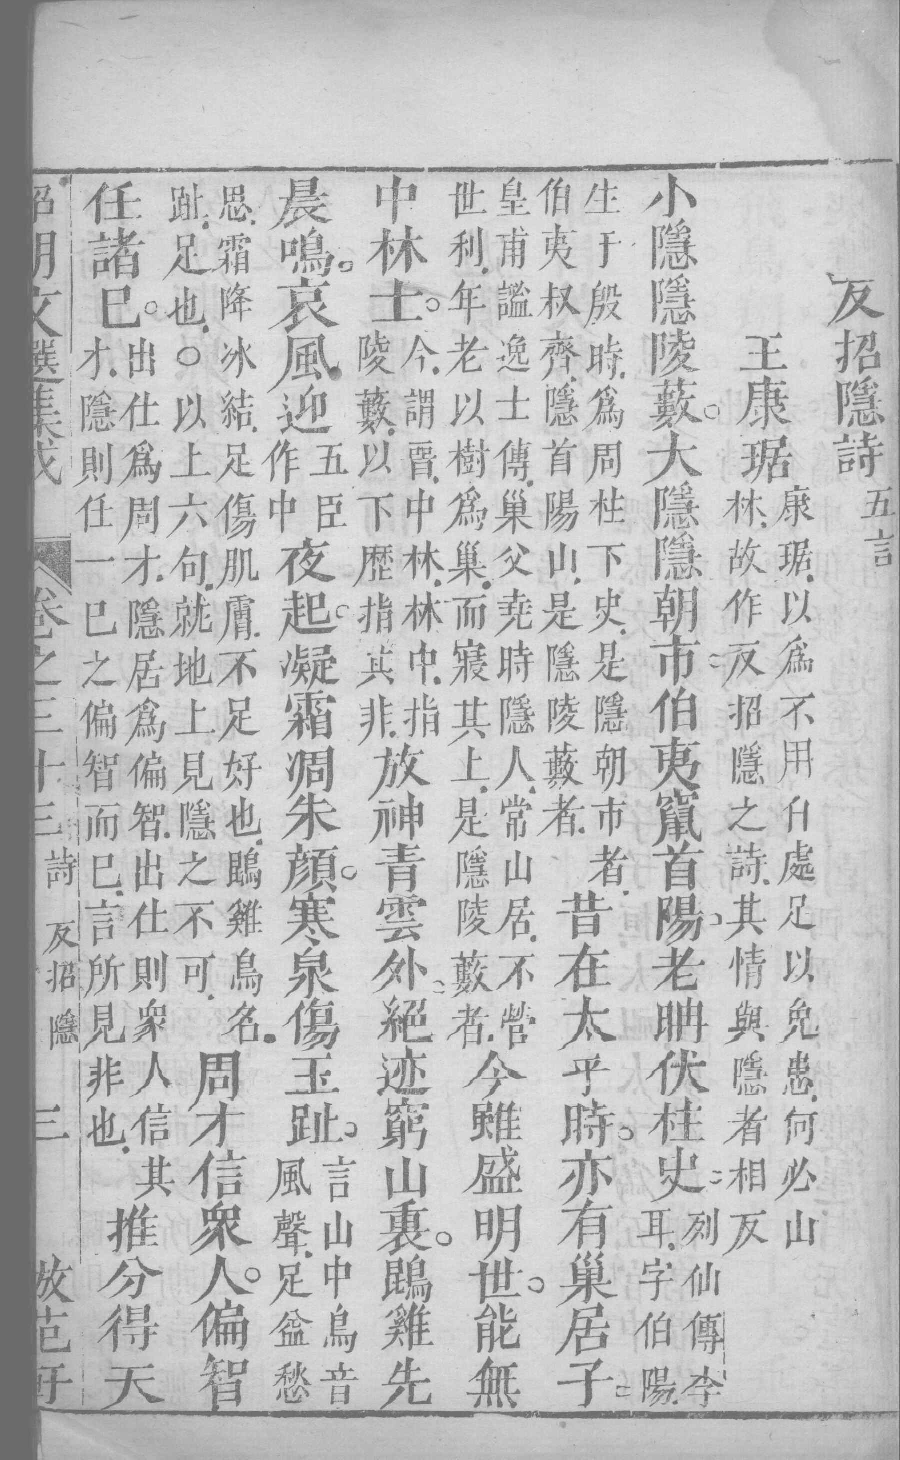 反招隱詩五言
王康琚康琚以爲不用自處足以免患何必山
林故作反招隱之詩其情與隱者相反
小隱隱陵藪大隱隱朝市伯夷竄首陽老聃伏柱史列仙傳李
耳字伯陽
生于殷時爲周柱下史是隱朝市者
伯夷叔齊隱首陽山是隱陵藪者昔在太平時亦有巢居子
皇甫謐逸士傳巢父堯時隱人常山居不營
世利年老以樹爲巢而寢其上是隱陵藪者今雖盛明世能無
中林士今謂晉中林林中指
陵藪以下歷指其非放神青雲外絕迹窮山裏鵾雞先
晨鳴哀風迎五臣
作中夜起凝霜凋朱顏寒泉傷玉趾言山中鳥音
風聲足益愁
思霜降冰結足傷肌膚不足好也鵾雞鳥名
趾足也○以上六句就地上見隱之不可周才信衆人偏智
任諸已出仕爲周才隱居爲偏智出仕則衆人信其
才隱則任一已之偏智而已言所見非也推分得天
昭明文選集成 卷之三十三詩 反招隱 三